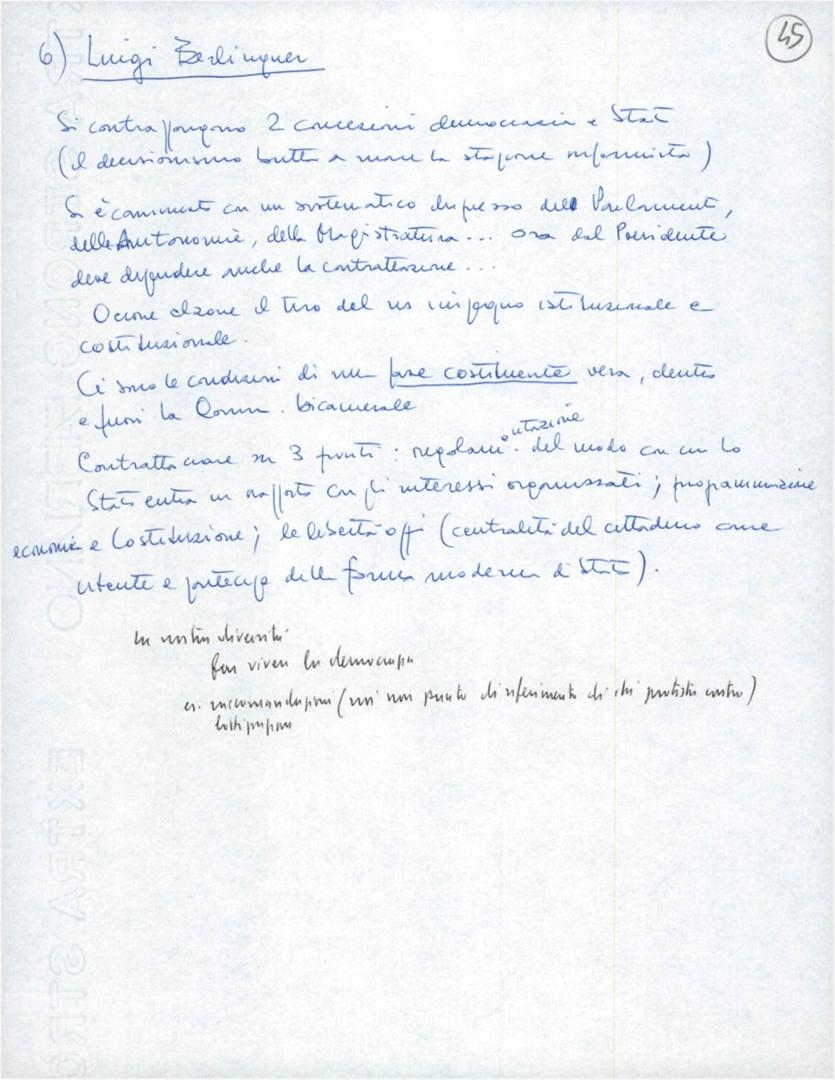 45
6) Luigi Berlinguer
Si contrappongono 2 concezioni democrazia e Stato
(il decisionismo butta a mare la stagione riformista)
Si è cominciato con un sistematico disprezzo del Parlamento,
delle Autonomie, della Magistratura... ora dal Presidente
deve difendere anche la contrattazione...
Occorre alzare il tiro del ns impegno istituzionale e
costituzionale.
Ci sono le condizioni di una fase costituente vera, dentro
e fuori la Comm. bicamerale
Contrattaccare su 3 punti: regolamentazione del modo con cui lo
Stato entra in rapporto con gli interessi organizzati; programmazione
economia e Costituzione; le libertà oggi (centralità del cittadino come
utente e partecipe della forma moderna di Stato).
la nostra diversità
far vivere la democrazia
es. raccomandazioni (noi non punto di riferimento di chi protesta contro)
lottizzazione
EXTRA STRONG